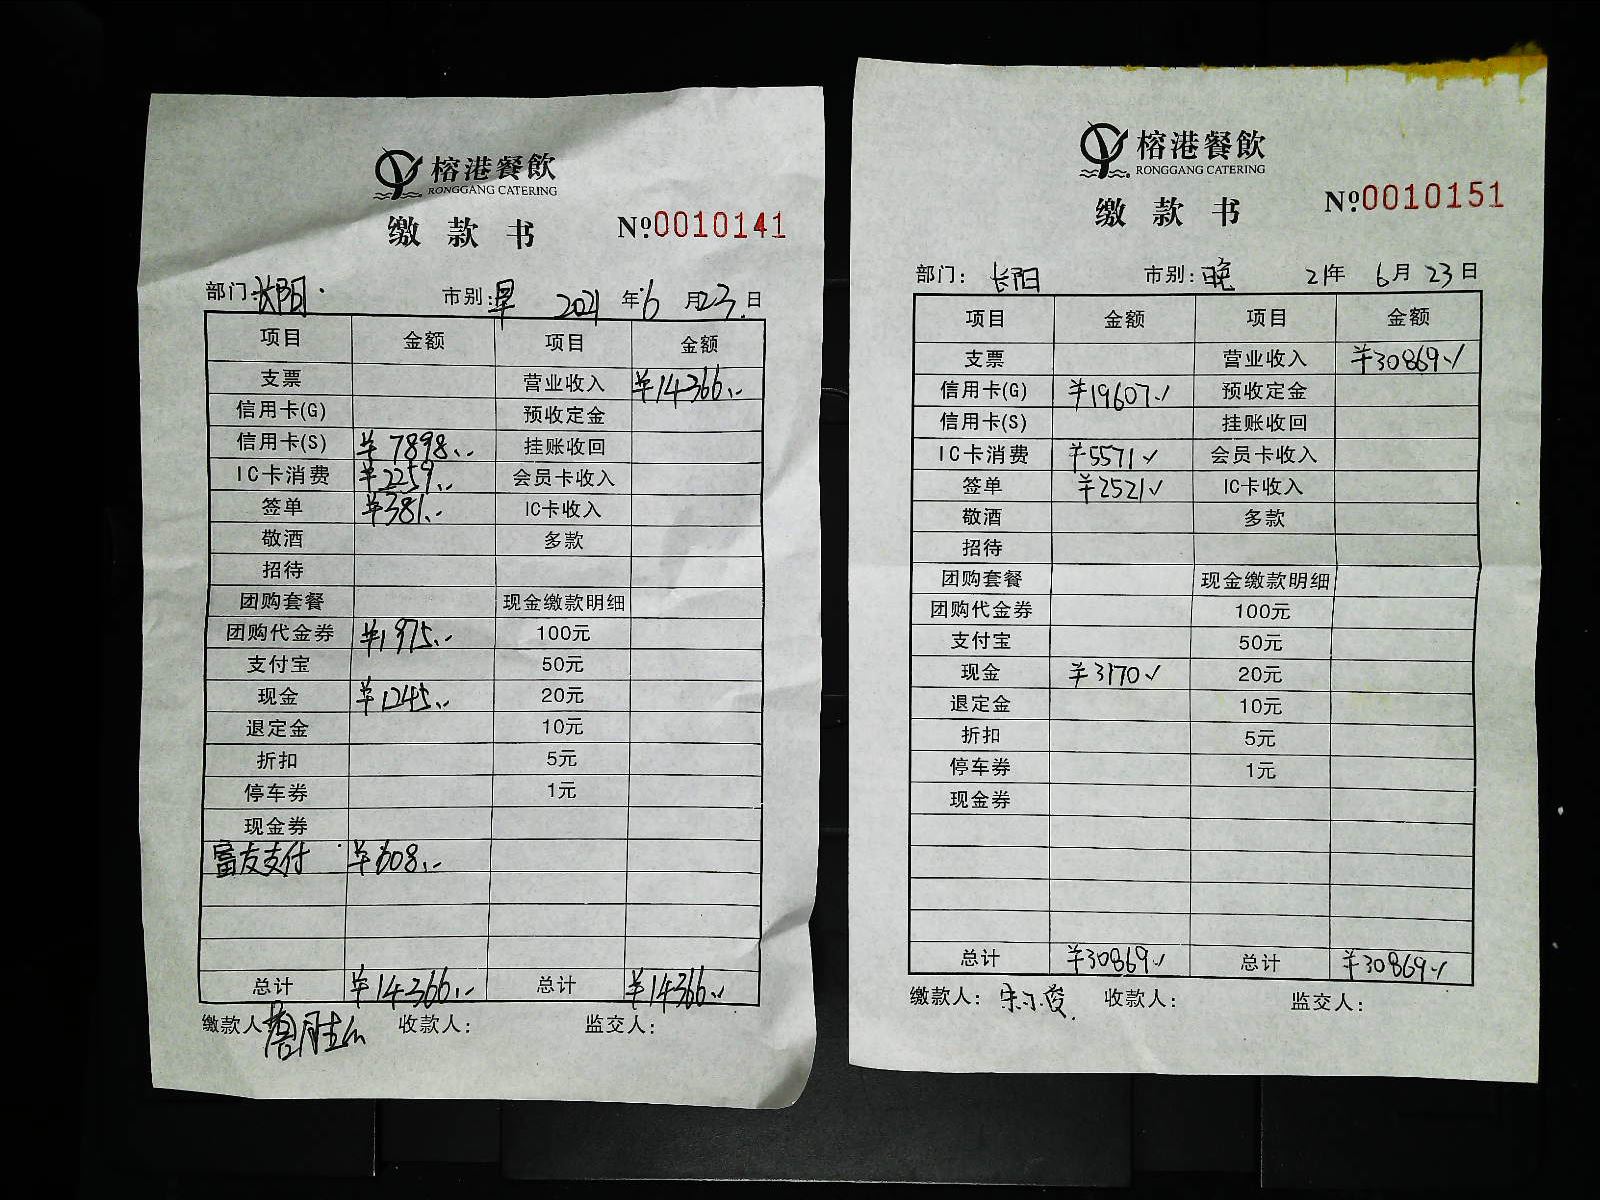 榕港餐飲
RONGGANG CATERING
缴款书 №0010141
部门: 长阳 市别: 早 2021年6月23日
项目 金额 项目 金额
支票 营业收入 ¥14366.-
信用卡(G) 预收定金
信用卡(S) ¥7898.- 挂账收回
IC卡消费 ¥2259.- 会员卡收入
签单 ¥381.- IC卡收入
敬酒 多款
招待
团购套餐 现金缴款明细
团购代金券 ¥1975.- 100元
支付宝 50元
现金 ¥1245.- 20元
退定金 10元
折扣 5元
停车券 1元
现金券
富友支付 ¥608.-
总计 ¥14366.- 总计 ¥14366.-
缴款人: 收款人: 监交人:
榕港餐飲
RONGGANG CATERING
缴款书 №0010151
部门: 长阳 市别: 晚 21年6月23日
项目 金额 项目 金额
支票 营业收入 ¥30869.-
信用卡(G) ¥19607.- 预收定金
信用卡(S) 挂账收回
IC卡消费 ¥5571.- 会员卡收入
签单 ¥2521.- IC卡收入
敬酒 多款
招待
团购套餐 现金缴款明细
团购代金券 100元
支付宝 50元
现金 ¥3170.- 20元
退定金 10元
折扣 5元
停车券 1元
现金券
总计 ¥30869.- 总计 ¥30869.-
缴款人: 收款人: 监交人: